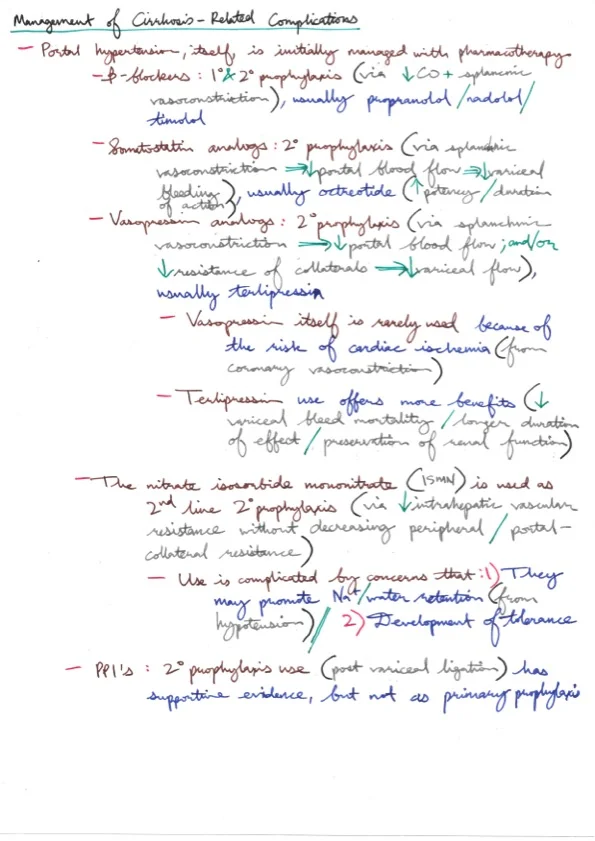 Management of Cirrhosis-Related Complications
- Portal hypertension, itself, is initially managed with pharmacotherapy
- β-blockers : 1° & 2° prophylaxis (via ↓CO + splancnic
vasoconstriction), usually propranolol/nadolol/
timolol
- Somatostatin analogs : 2° prophylaxis (via splanchnic
vasoconstriction → ↓portal blood flow → ↓variceal
bleeding), usually octreotide (↑potency/duration
of action)
- Vasopressin analogs : 2° prophylaxis (via splanchnic
vasoconstriction → ↓portal blood flow ; and/or
↓resistance of collaterals → ↓variceal flow),
usually terlipressin
- Vasopressin itself is rarely used because of
the risk of cardiac ischemia (from
coronary vasoconstriction)
- Terlipressin use offers more benefits (↓
variceal bleed mortality/longer duration
of effect/preservation of renal function)
- The nitrate isosorbide mononitrate (ISMN) is used as
2nd line 2° prophylaxis (via ↓intrahepatic vascular
resistance without decreasing peripheral/portal-
collateral resistance)
- Use is complicated by concerns that : 1) They
may promote Na⁺/water retention (from
hypotension)/ 2) Development of tolerance
- PPI's : 2° prophylaxis use (post variceal ligation) has
supportive evidence, but not as primary prophylaxis